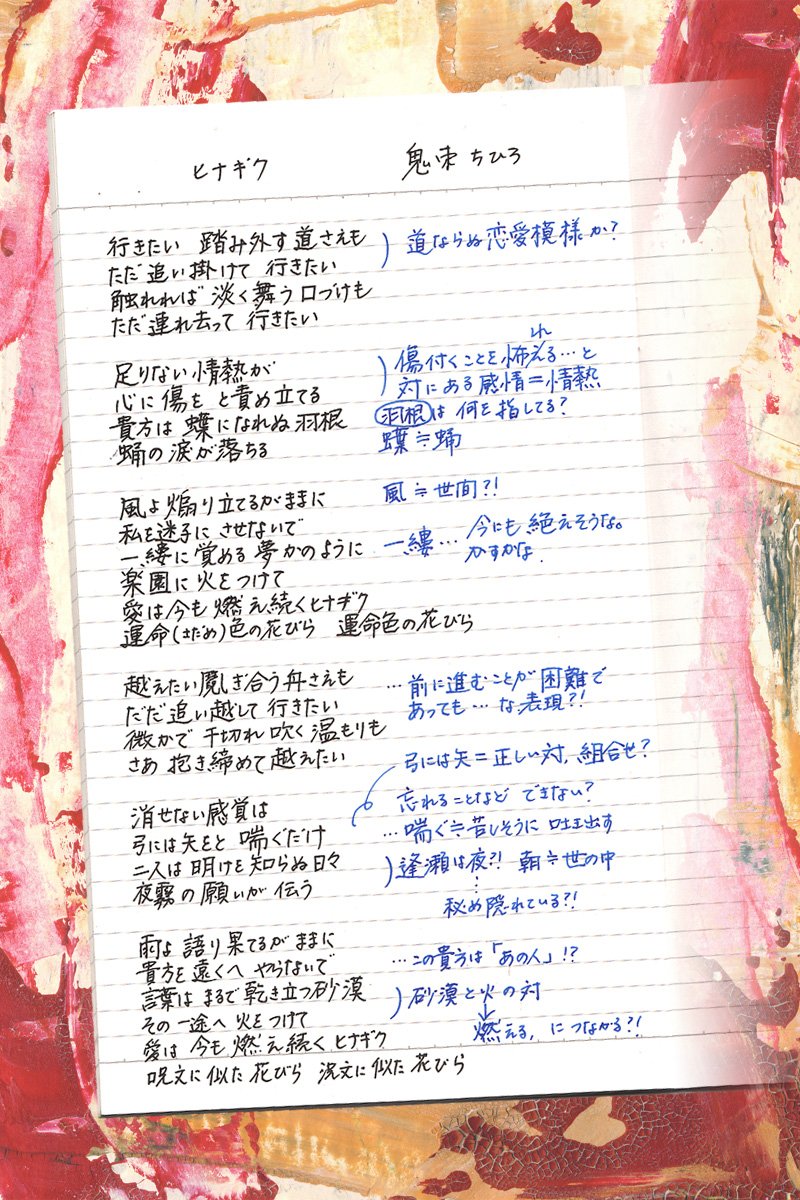 ヒナギク 鬼束ちひろ
行きたい 踏み外す道さえも
ただ追い掛けて 行きたい
触れれば 淡く舞う口づけも
ただ連れ去って 行きたい
道ならぬ恋愛模様か?
足りない情熱が
心に傷を と責め立てる
貴方は 蝶になれぬ羽根
蛹の涙が落ちる
れ
傷付くことを怖える…と
対にある感情=情熱
羽根は何を指してる?
蝶≒蛹
風よ煽り立てるがままに
私を迷子に させないで
一縷に覚める夢かのように
楽園に火をつけて
愛は今も燃え続くヒナギク
運命(さだめ)色の花びら 運命色の花びら
風≒世間?!
一縷… 今にも絶えそうな。
かすかな.
越えたい 魔しぎ合う舟さえも
だだ追い越して 行きたい
微かで 千切れ吹く温もりも
さあ 抱き締めて越えたい
…前に進むことが困難で
あっても… な表現?!
消せない感覚は
弓には矢をと 喘ぐだけ
二人は明けを知らぬ日々
夜霧の願いが伝う
弓には矢=正しい対,組合せ?
忘れることなど できない?
…喘ぐ≒苦しそうに吐き出す
逢瀬は夜?! 朝≒世の中
秘め隠れている?!
雨よ 語り果てるがままに
貴方を遠くへ やらないで
言葉は まるで乾き立つ砂漠
その一途へ 火をつけて
愛は 今も燃え続く ヒナギク
呪文に似た花びら 呪文に似た花びら
…この貴方は「あの人」!?
砂漠と火の対
燃える, につながる?!